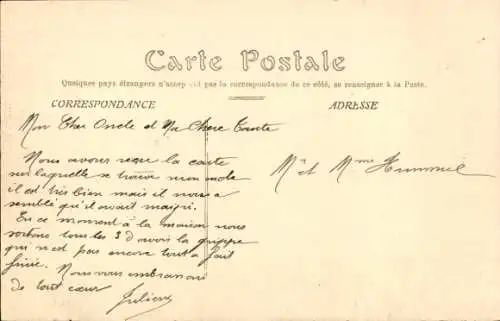 Carte Postale
Quelques pays étrangers n'acceptent pas la correspondance de ce côté, se renseigner à la Poste.
CORRESPONDANCE
ADRESSE
Mon Cher Oncle et Ma Chere Tante
Nous avons reçu la carte
sur laquelle se trouve mon oncle
il est très bien mais il nous a
semblé qu'il avait maigri.
En ce moment à la maison nous
sortons tous les 3 d'avoir la grippe
qui n'est pas encore tout à fait
finie. Nous vous embrassons
de tout cœur
Julien
Mr et Mme Hummel